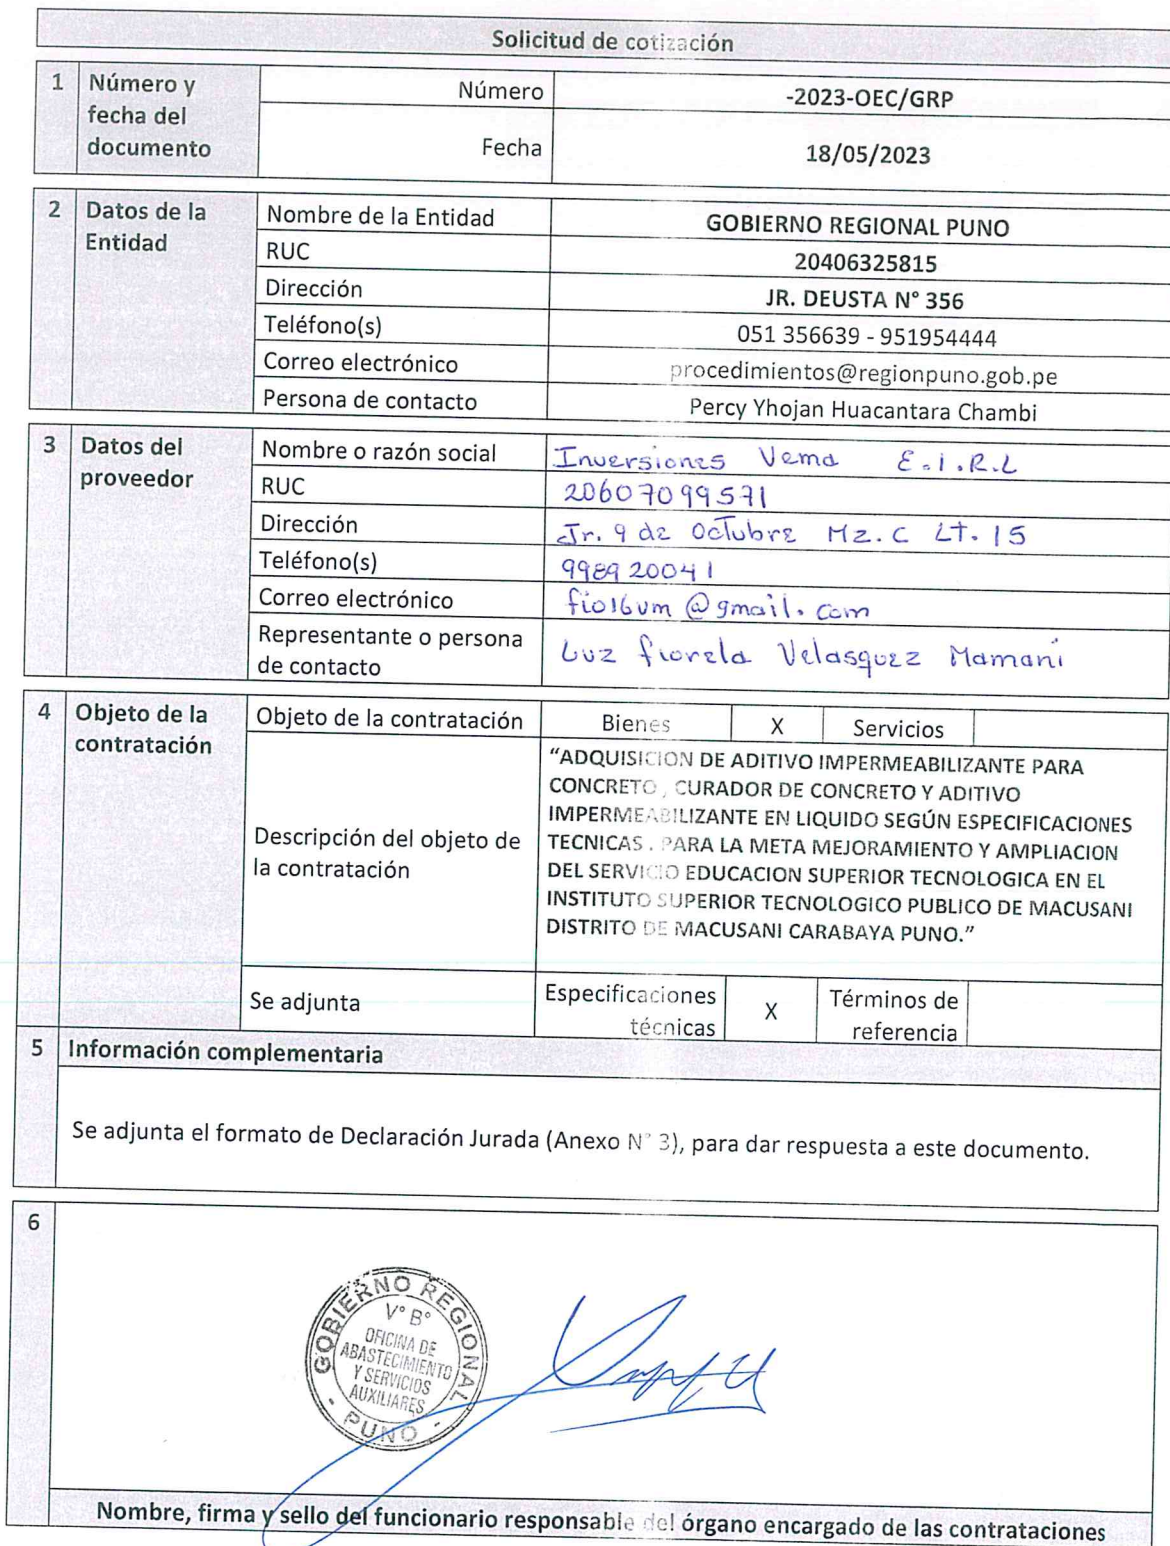 Solicitud de cotización
1 Número y fecha del documento
Número -2023-OEC/GRP
Fecha 18/05/2023
2 Datos de la Entidad
Nombre de la Entidad GOBIERNO REGIONAL PUNO
RUC 20406325815
Dirección JR. DEUSTA N° 356
Teléfono(s) 051 356639 - 951954444
Correo electrónico procedimientos@regionpuno.gob.pe
Persona de contacto Percy Yhojan Huacantara Chambi
3 Datos del proveedor
Nombre o razón social Inversiones Vema E.I.R.L
RUC 20607099571
Dirección Jr. 9 de Octubre Mz. C Lt. 15
Teléfono(s) 998920041
Correo electrónico fio16vm@gmail.com
Representante o persona de contacto Luz fiorela Velasquez Mamani
4 Objeto de la contratación
Objeto de la contratación Bienes X Servicios
Descripción del objeto de la contratación
“ADQUISICION DE ADITIVO IMPERMEABILIZANTE PARA
CONCRETO , CURADOR DE CONCRETO Y ADITIVO
IMPERMEABILIZANTE EN LIQUIDO SEGÚN ESPECIFICACIONES
TECNICAS . PARA LA META MEJORAMIENTO Y AMPLIACION
DEL SERVICIO EDUCACION SUPERIOR TECNOLOGICA EN EL
INSTITUTO SUPERIOR TECNOLOGICO PUBLICO DE MACUSANI
DISTRITO DE MACUSANI CARABAYA PUNO.”
Se adjunta Especificaciones técnicas X Términos de referencia
5 Información complementaria
Se adjunta el formato de Declaración Jurada (Anexo N° 3), para dar respuesta a este documento.
6
GOBIERNO REGIONAL
V° B°
OFICINA DE
ABASTECIMIENTO
Y SERVICIOS
AUXILIARES
- PUNO -
Nombre, firma y sello del funcionario responsable del órgano encargado de las contrataciones